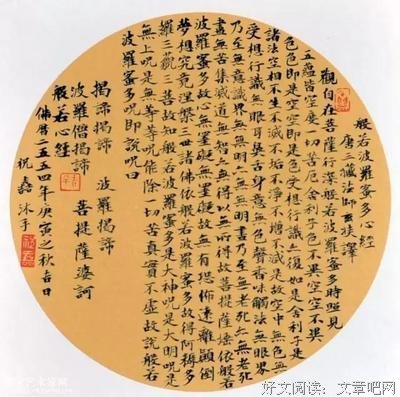 般若波羅蜜多心經
唐三藏法師玄奘譯
觀自在菩薩行深般若波羅蜜多時照見
五蘊皆空度一切苦厄舍利子色不異空空不異
色色即是空空即是色受想行識亦復如是舍利子是
諸法空相不生不滅不垢不淨不增不減是故空中無色無
受想行識無眼耳鼻舌身意無色聲香味觸法無眼界
乃至無意識界無無明亦無無明盡乃至無老死亦無老死
盡無苦集滅道無智亦無得以無所得故菩提薩埵依般若
波羅蜜多故心無罣礙無罣礙故無有恐怖遠離顛倒
夢想究竟涅槃三世諸佛依般若波羅蜜多故得阿耨多
羅三藐三菩提故知般若波羅蜜多是大神咒是大明咒是
無上咒是無等等咒能除一切苦真實不虛故說般若
波羅蜜多咒即說咒曰
揭諦揭諦 波羅揭諦
波羅僧揭諦 菩提薩婆訶
般若心經
佛曆二五五四年庚寅之秋吉日
祝嚞沐手
好文阅读：文章吧网